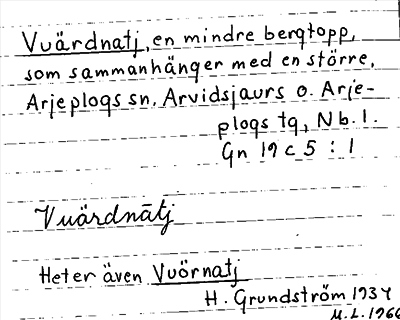 Vuärdnatj, en mindre bergtopp,
som sammanhänger med en större,
Arjeplogs sn, Arvidsjaurs o. Arje-
plogs tg, Nb. l.
Gn 19 c 5 : 1
Vuärdnātj
Heter även Vuörnatj
H. Grundström 1934
M.L. 1966